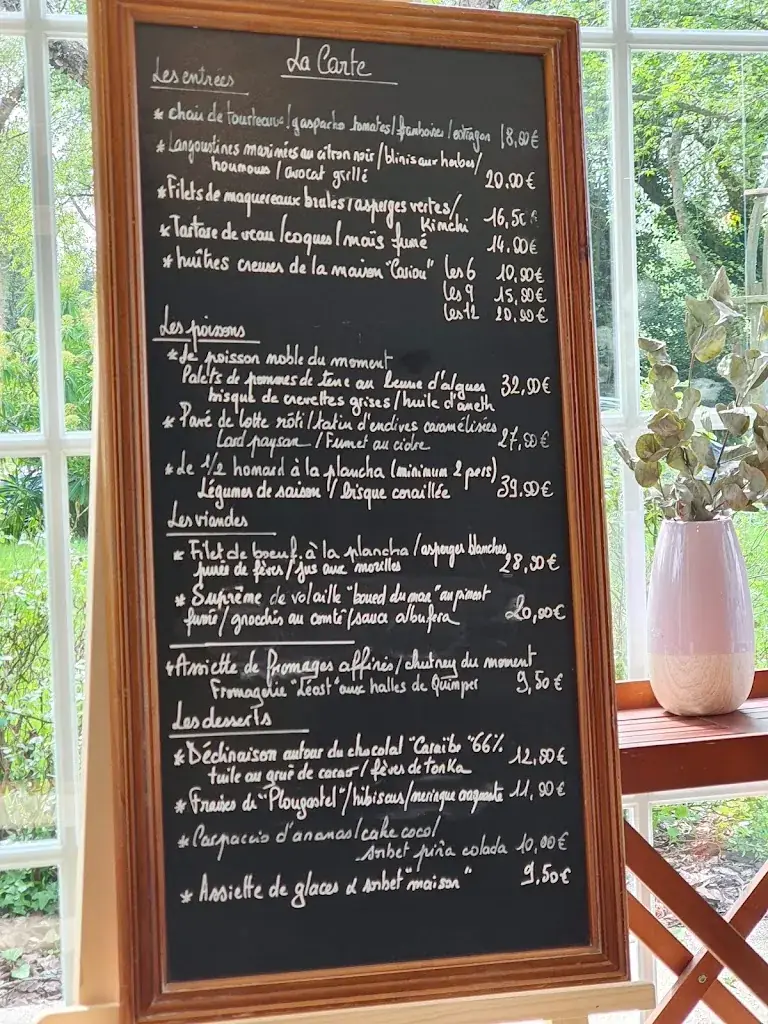 La Carte
Les entrées
* chair de tourteaux/gaspacho tomates/framboises/estragon 18,00€
* Langoustines marinées au citron noir/blinis aux herbes/
houmous/avocat grillé 20.00€
* Filets de maquereaux brulés/asperges vertes/
Kimchi 16,50€
* Tartare de veau/coques/maïs fumé 14.00€
* huîtres creuses de la maison "Cariou" les 6 10,90€
les 9 15,80€
les 12 20.90€
Les poissons
* Le poisson noble du moment
Palets de pommes de terre au beurre d'algues 32,00€
bisque de crevettes grises/huile d'aneth
* Pavé de lotte rôti/tatin d'endives caramélisées
Lard paysan/Fumet au cidre 27,50€
* Le 1/2 homard à la plancha (minimum 2 pers)
Légumes de saison/bisque coraillée 39.00€
Les viandes
* Filet de boeuf à la plancha/asperges blanches
purée de fèves/jus aux morilles 28,50€
* Suprême de volaille "boued du mae" au piment
fumé/gnocchis au comté/sauce albufera 20,00€
* Assiette de fromages affinés/chutney du moment
Fromagerie "Léost" aux halles de Quimper 9,50€
Les desserts
* Déclinaison autour du chocolat "Caraïbe" 66% 12,50€
tuile au grué de cacao/fèves de tonKa
* Fraises de "Plougastel"/hibiscus/meringue craquante 11,90€
* Carpaccio d'ananas/cake coco/
sorbet piña colada 10,00€
* Assiette de glaces & sorbet "maison" 9,50€